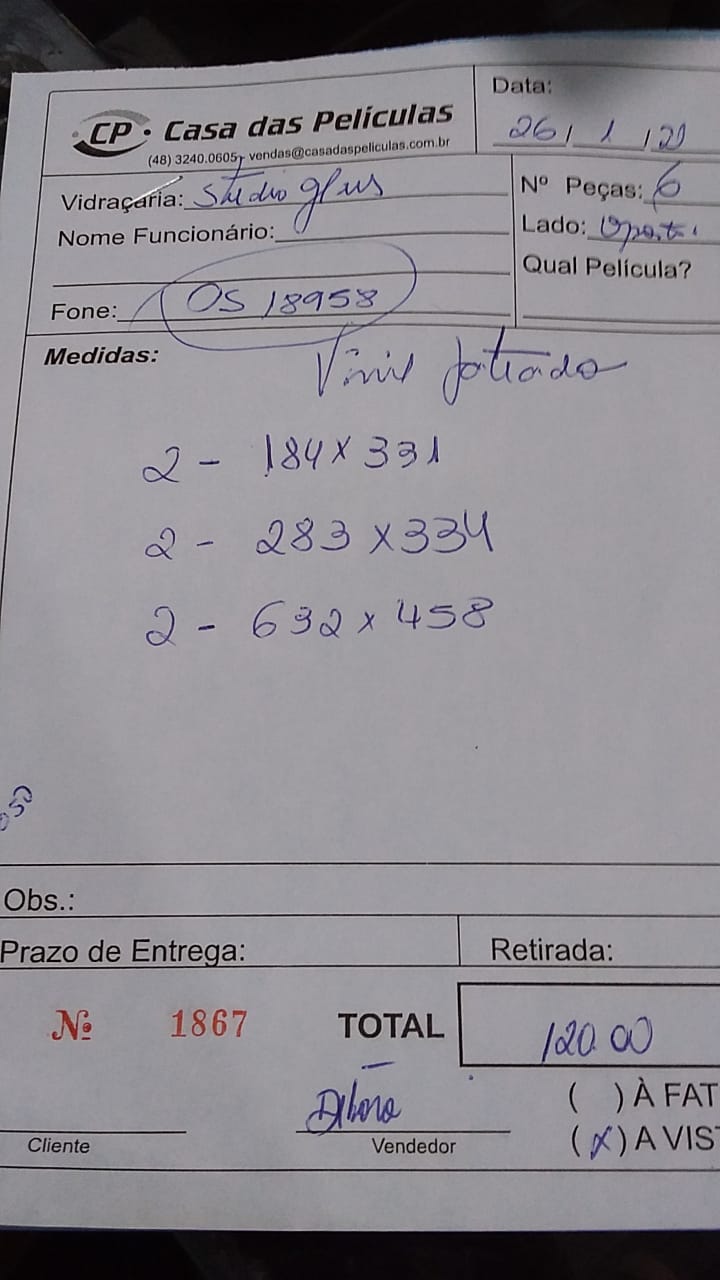 CP · Casa das Películas
(48) 3240.0605 - vendas@casadaspeliculas.com.br
Data: 26/ 1 /
Vidraçaria: Studio glass
Nº Peças: 6
Nome Funcionário:
Lado:
Qual Película?
Fone: OS 18958
Medidas: Vinil Jateado
2 - 184 x 331
2 - 283 x 334
2 - 632 x 458
Obs.:
Prazo de Entrega:
Retirada:
Nº 1867
TOTAL 120.00
( ) À FAT
Débora
(x) A VIS
Cliente
Vendedor